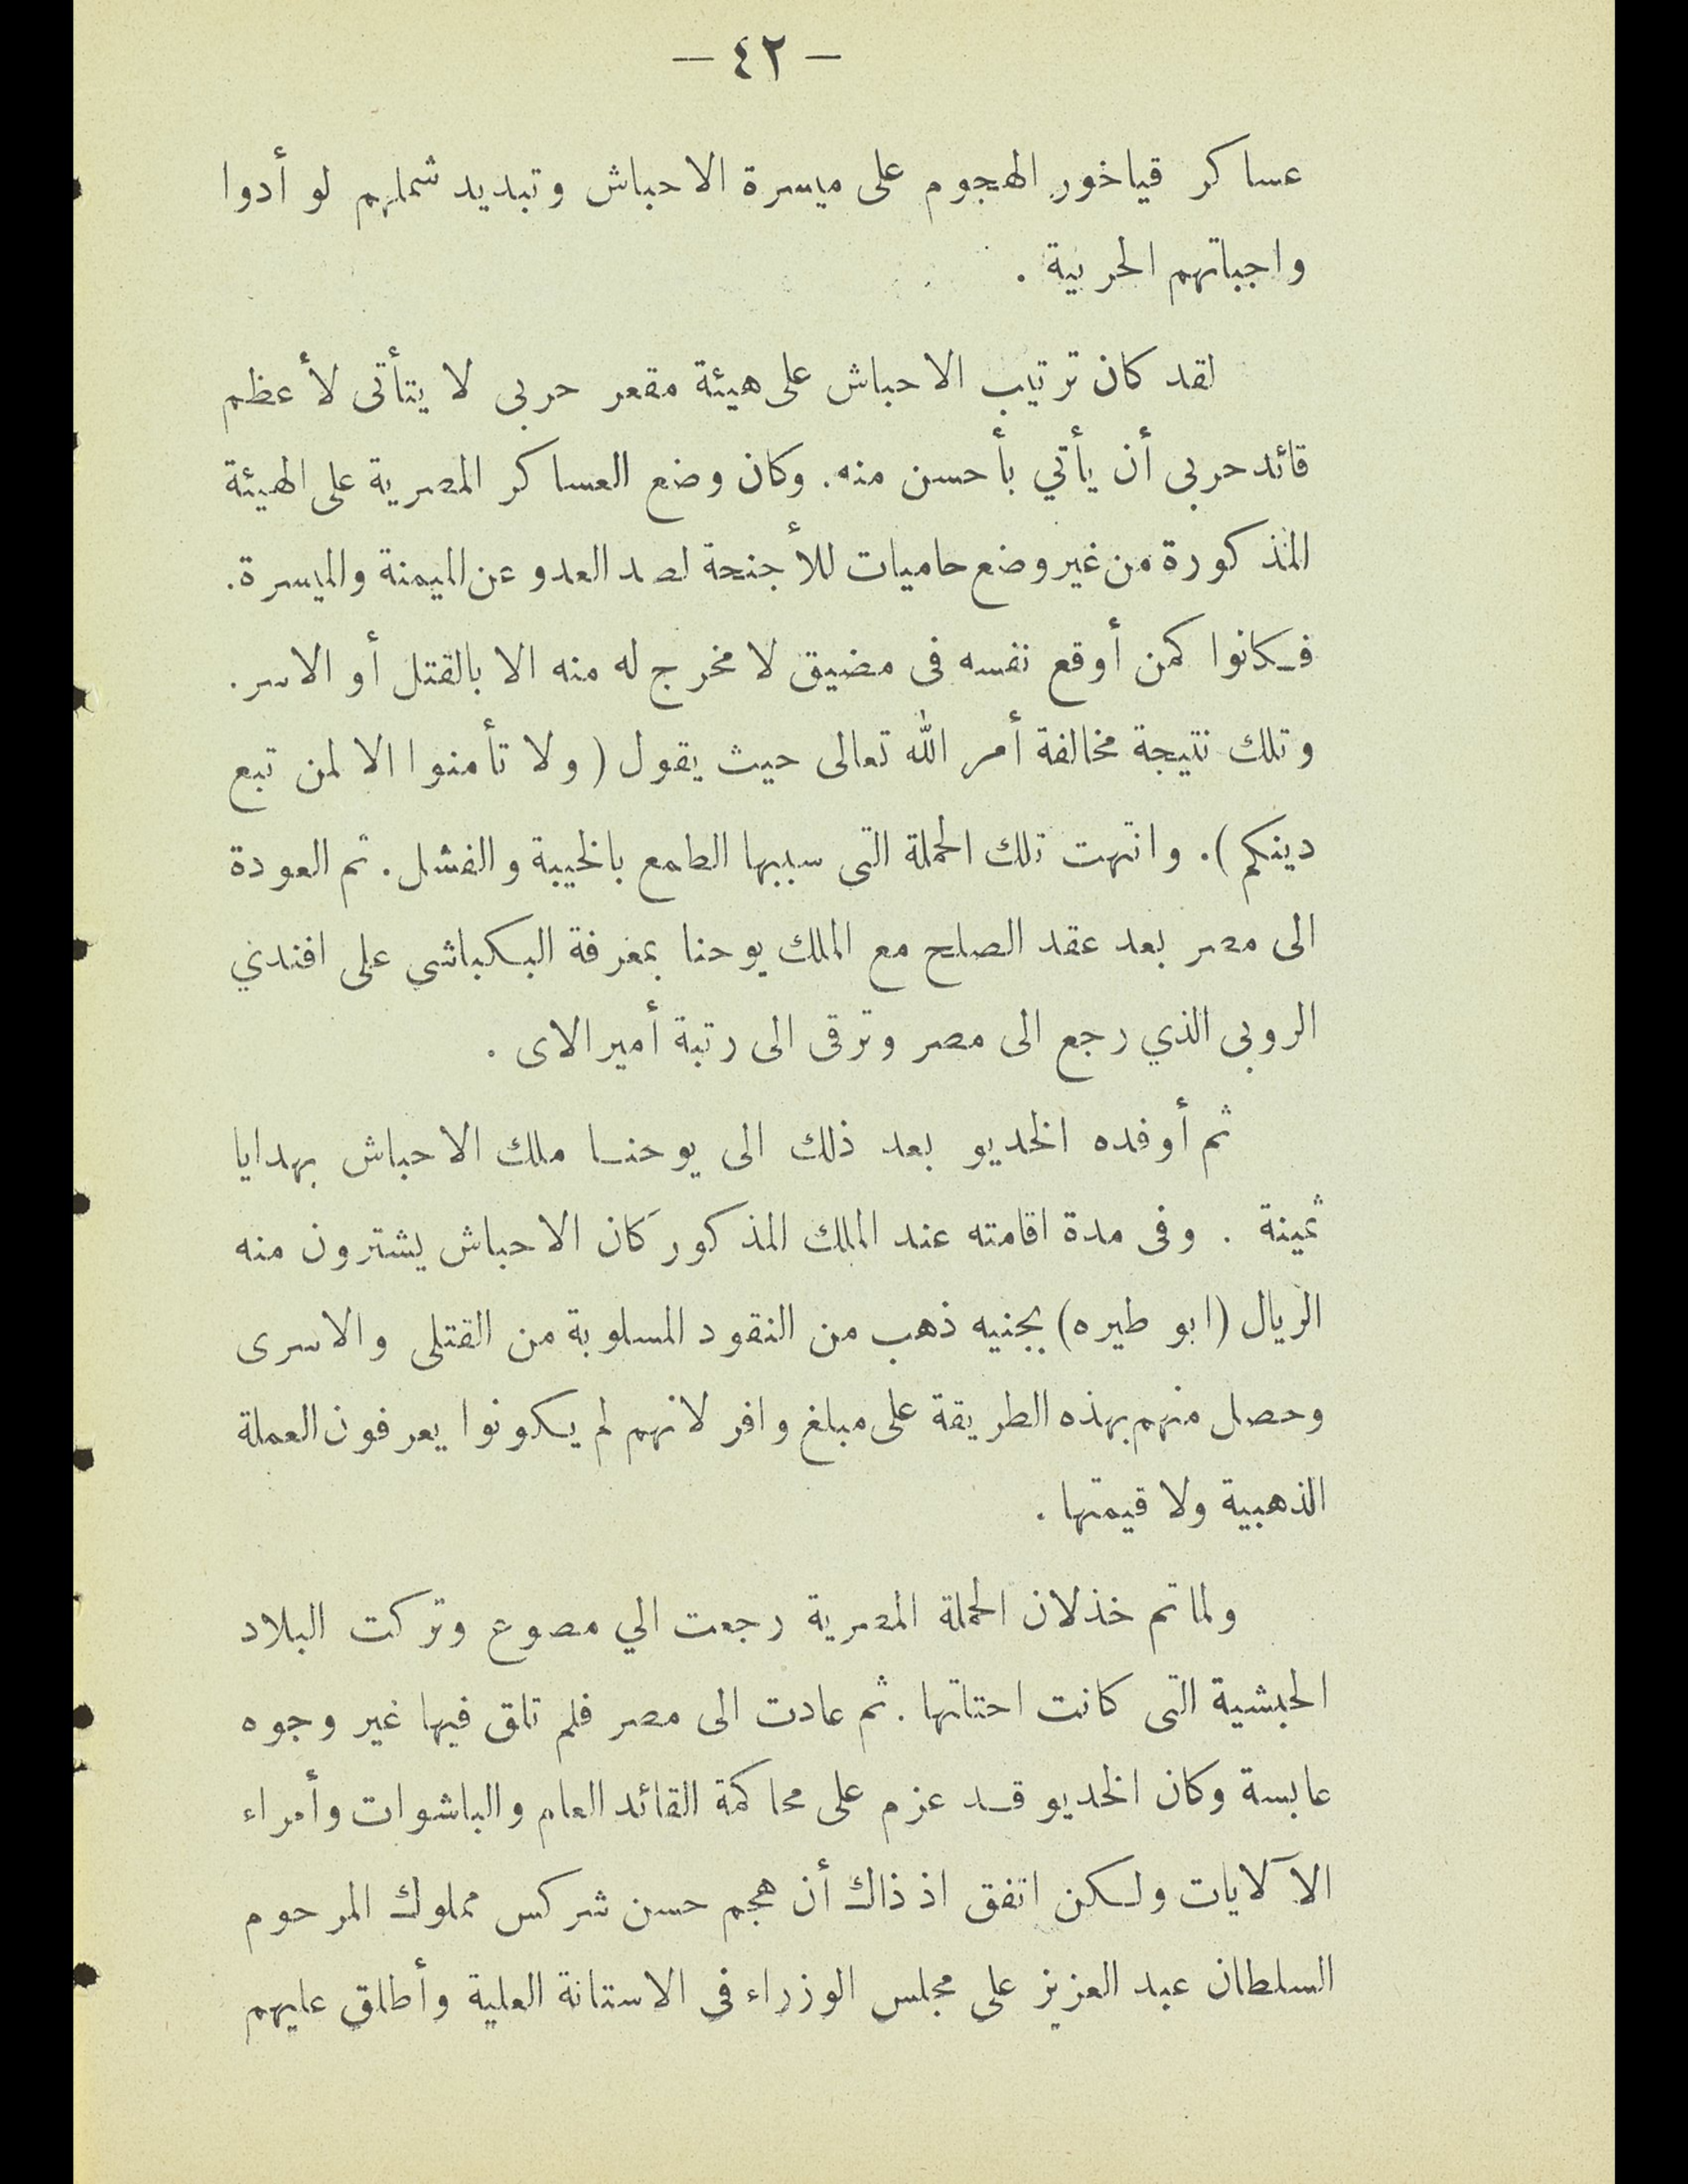 — ٤٢ —
عساكر قياخور الهجوم على ميسرة الاحباش وتبديد شملهم لو أدوا
واجباتهم الحربية .
لقد كان ترتيب الاحباش على هيئة مقعر حربى لا يتأتى لأعظم
قائد حربى أن يأتي بأحسن منه . وكان وضع العساكر المصرية على الهيئة
المذكورة من غير وضع حاميات للأجنحة لصد العدو عن الميمنة والميسرة .
فكانوا كمن أوقع نفسه فى مضيق لا مخرج له منه الا بالقتل أو الاسر .
وتلك نتيجة مخالفة أمر الله تعالى حيث يقول ( ولا تأمنوا الا لمن تبع
دينكم ) . وانتهت تلك الحملة التى سببها الطمع بالخيبة والفشل . تم العودة
الى مصر بعد عقد الصلح مع الملك يوحنا بمعرفة البكباشى على افندي
الروبى الذي رجع الى مصر وترقى الى رتبة أميرالاى .
ثم أوفده الخديو بعد ذلك الى يوحنا ملك الاحباش بهدايا
ثمينة . وفى مدة اقامته عند الملك المذكور كان الاحباش يشترون منه
الريال (ابو طيره) بجنيه ذهب من النقود المسلوبة من القتلى والاسرى
وحصل منهم بهذه الطريقة على مبلغ وافر لانهم لم يكونوا يعرفون العملة
الذهبية ولا قيمتها .
ولما تم خذلان الحملة المصرية رجعت الي مصوع وتركت البلاد
الحبشية التى كانت احتلتها . ثم عادت الى مصر فلم تلق فيها غير وجوه
عابسة وكان الخديو قد عزم على محاكمة القائد العام والباشوات وأمراء
الآلايات ولكن اتفق اذ ذاك أن هجم حسن شركس مملوك المرحوم
السلطان عبد العزيز على مجلس الوزراء فى الاستانة العلية وأطلق عليهم